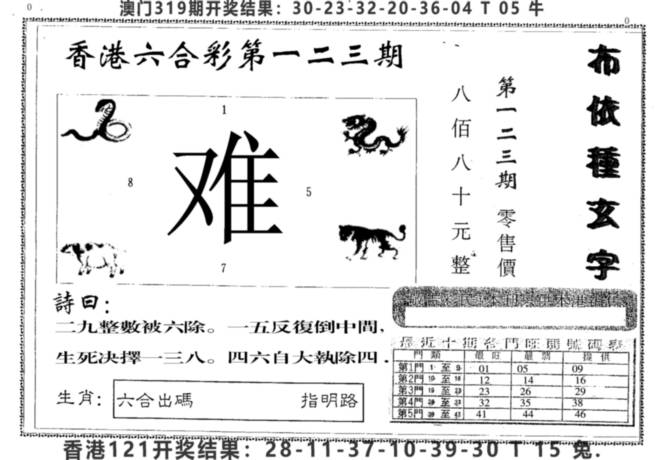 澳门319期开奖结果：30-23-32-20-36-04 T 05 牛
0
0
香港六合彩第一二三期
布依種玄字
第一二三期 零售價
八佰八十元整
1
难
8
5
7
詩曰：
二九整數被六除。一五反復倒中間，
生死决擇一三八。四六自大執除四．
生肖：
六合出碼 指明路
最近十期各門旺開號碼
門類 最旺 最 提供
第1門 1 至 9 01 05 09
第2門 10 至 18 12 14 16
第3門 至 23 26 29
第4門 至 32 35 38
第5門 至 41 44 46
香港121开奖结果：28-11-37-10-39-30 T 15 兔.